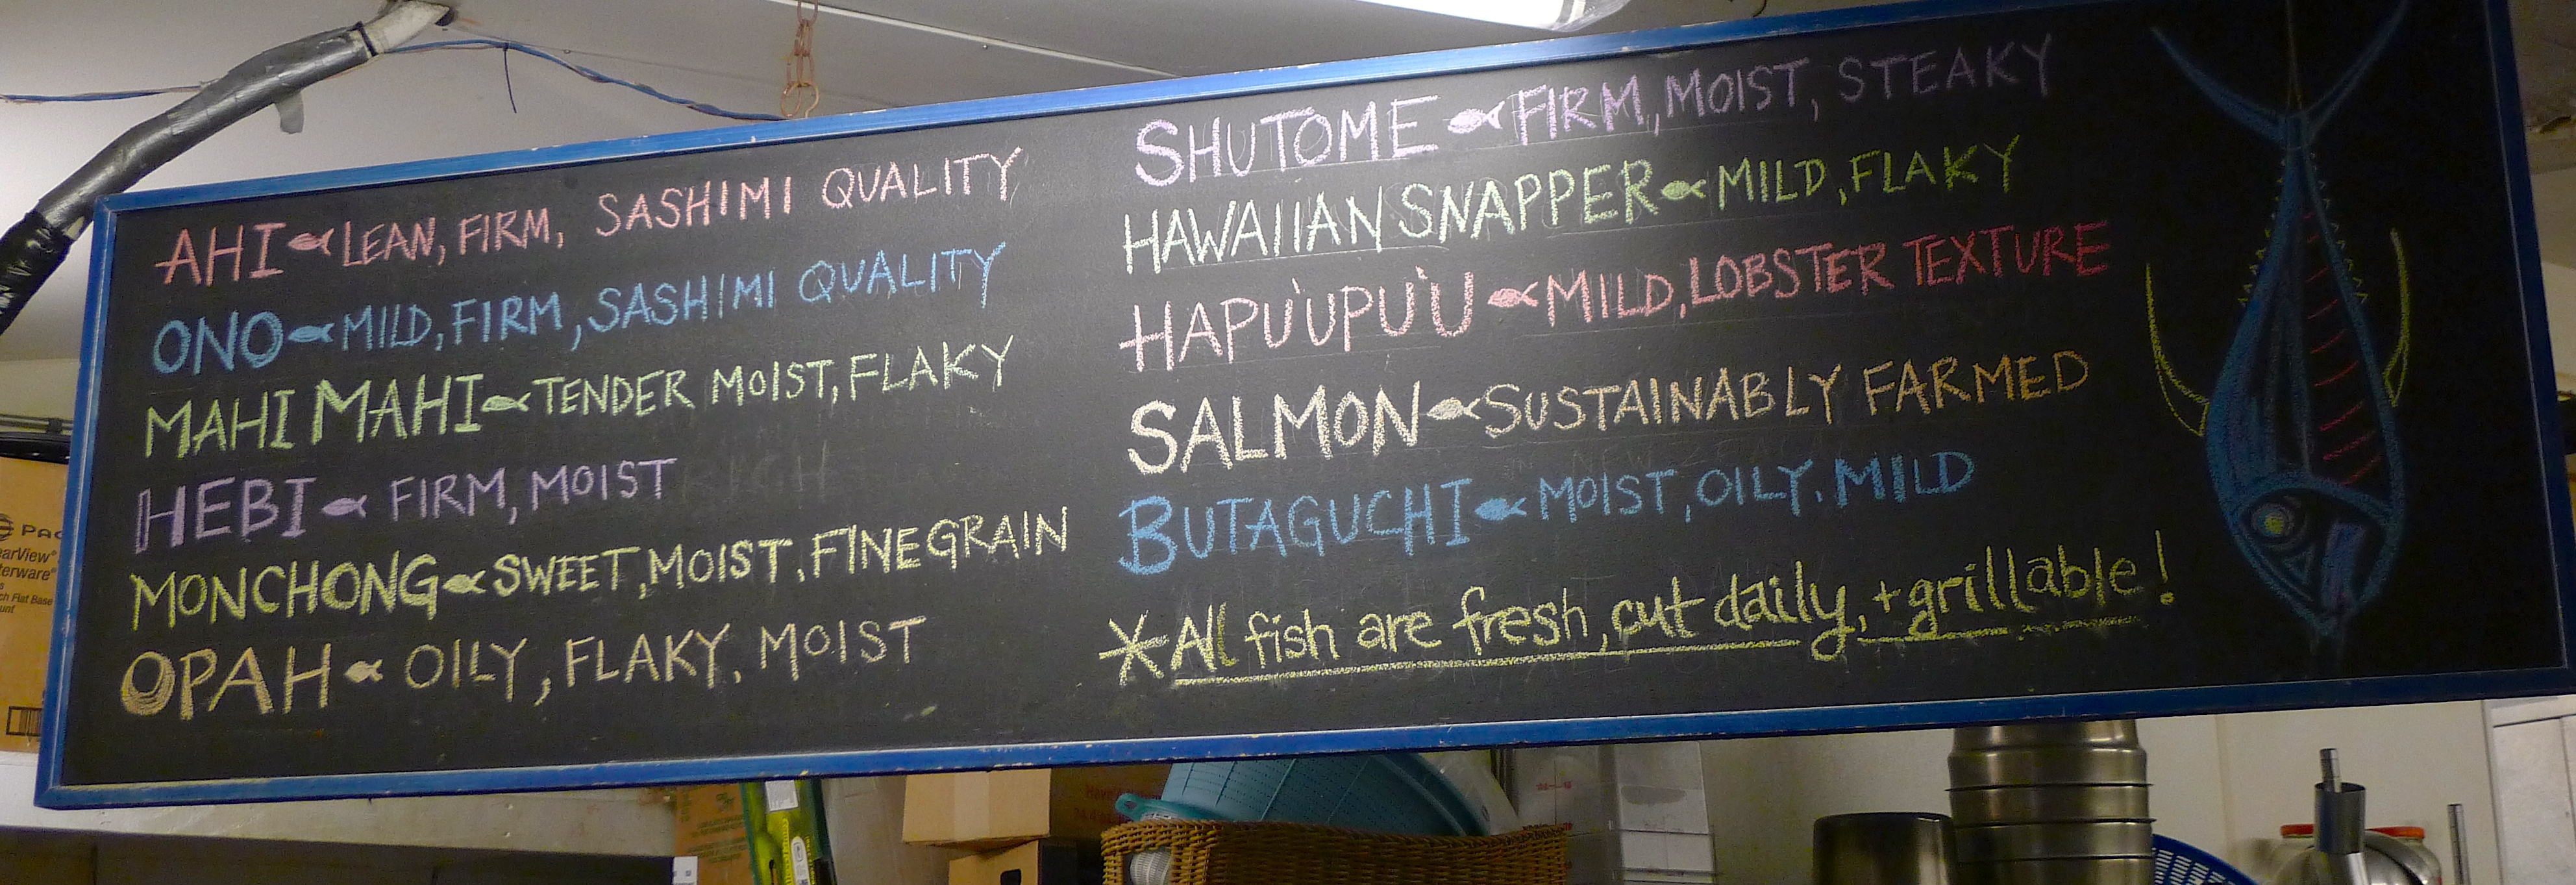 AHI LEAN, FIRM, SASHIMI QUALITY
ONO MILD, FIRM, SASHIMI QUALITY
MAHI MAHI TENDER MOIST, FLAKY
HEBI FIRM, MOIST
MONCHONG SWEET, MOIST, FINE GRAIN
OPAH OILY, FLAKY, MOIST
SHUTOME FIRM, MOIST, STEAKY
HAWAIIAN SNAPPER MILD, FLAKY
HAPU'UPU'U MILD, LOBSTER TEXTURE
SALMON SUSTAINABLY FARMED
BUTAGUCHI MOIST, OILY, MILD
*All fish are fresh, cut daily, + grillable!